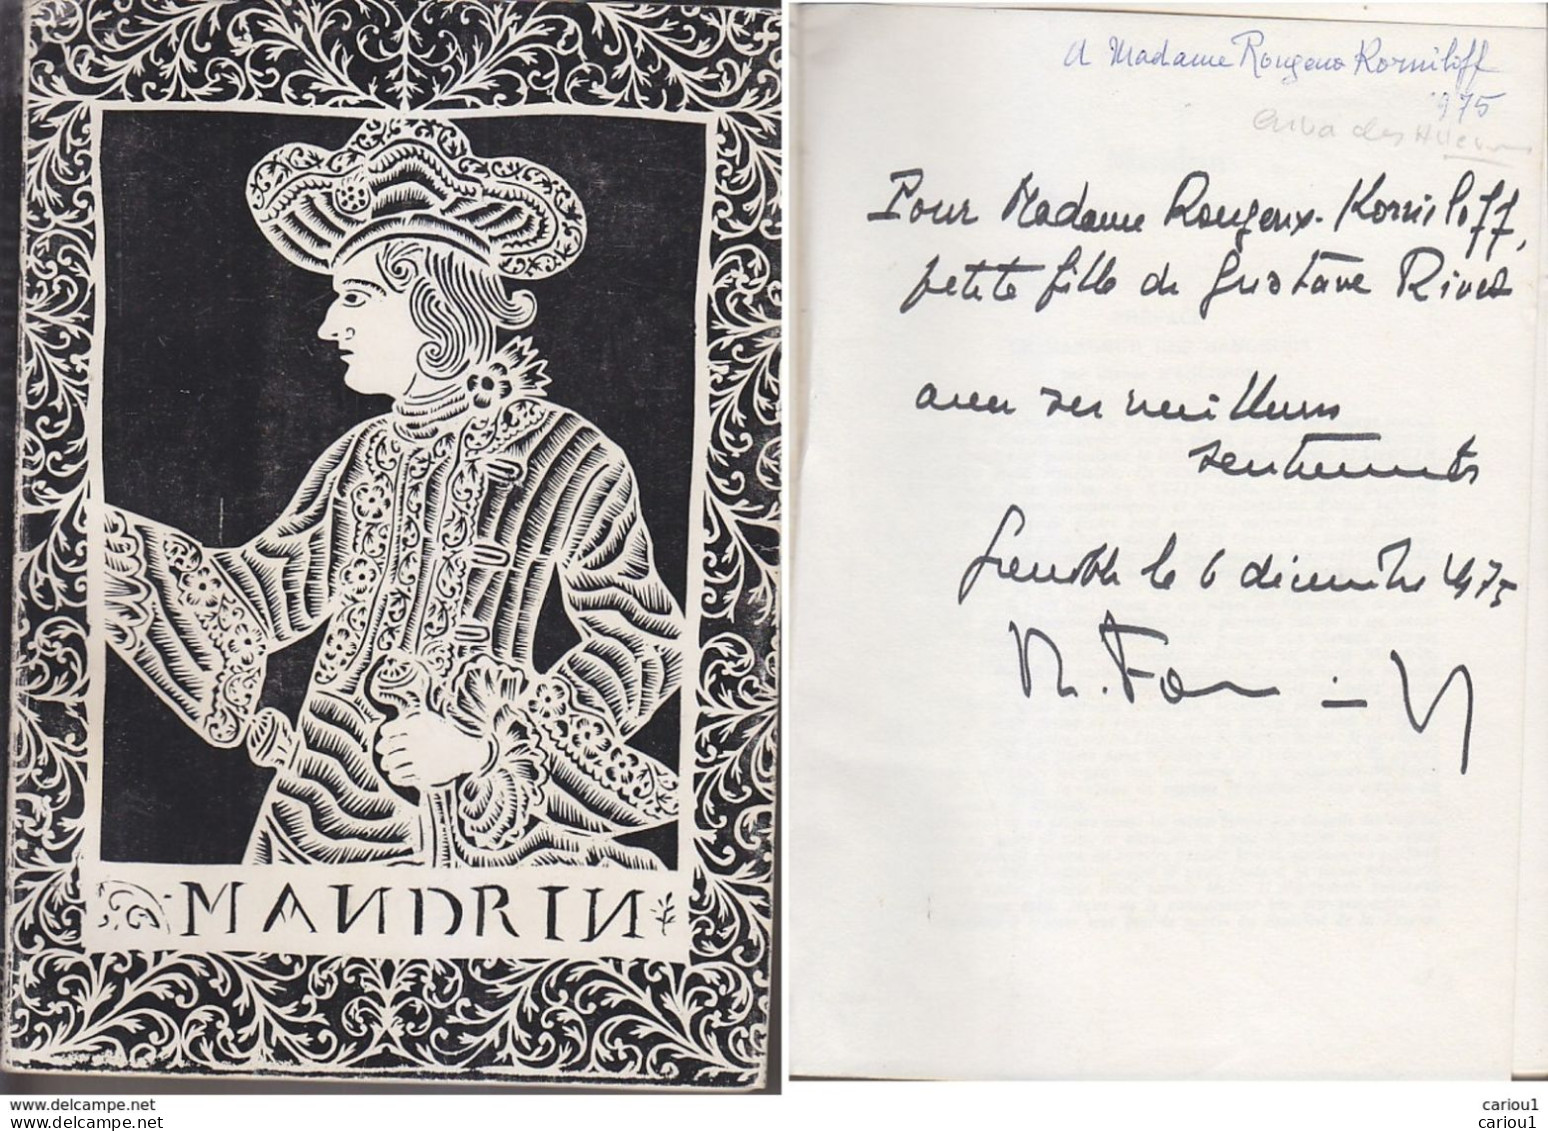 MANDRIN
A Madame Rougeux Korniloff
1975
Pour Madame Rougeux-Korniloff,
petite fille de Gustave Rivet
avec ses meilleurs
sentiments
Grenoble le 6 décembre 1975
www.delcampe.net
www.delcampe.net
cariou1
cariou1